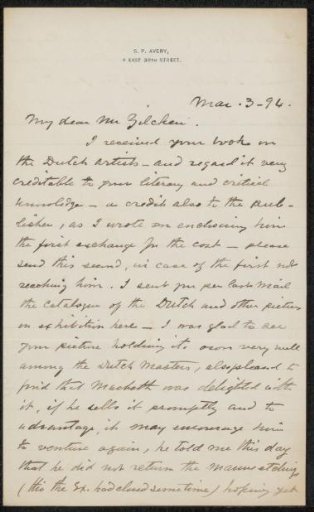 S. P. AVERY,
4 EAST 38TH STREET.
Mar. 3 - 94.
My dear Mr Zilcken.
I received your book on
the Dutch artists - and regard it very
creditable to your literary and critical
knowledge - a credit also to the pub-
lisher, as I wrote on enclosing him
the first exchange for the cost - please
send this second, in case of the first not
reaching him. I sent you per last mail
the catalogue of the Dutch and other pictures
on exhibition here - I was glad to see
your picture holding its own very well
among the Dutch Masters, also pleased to
find that was delighted with
it, if he sells it promptly and to
advantage, it may encourage him
to venture again, he told me this day
that he did not return the Mauve etching
(tho the Ex. had closed sometime) hoping yet